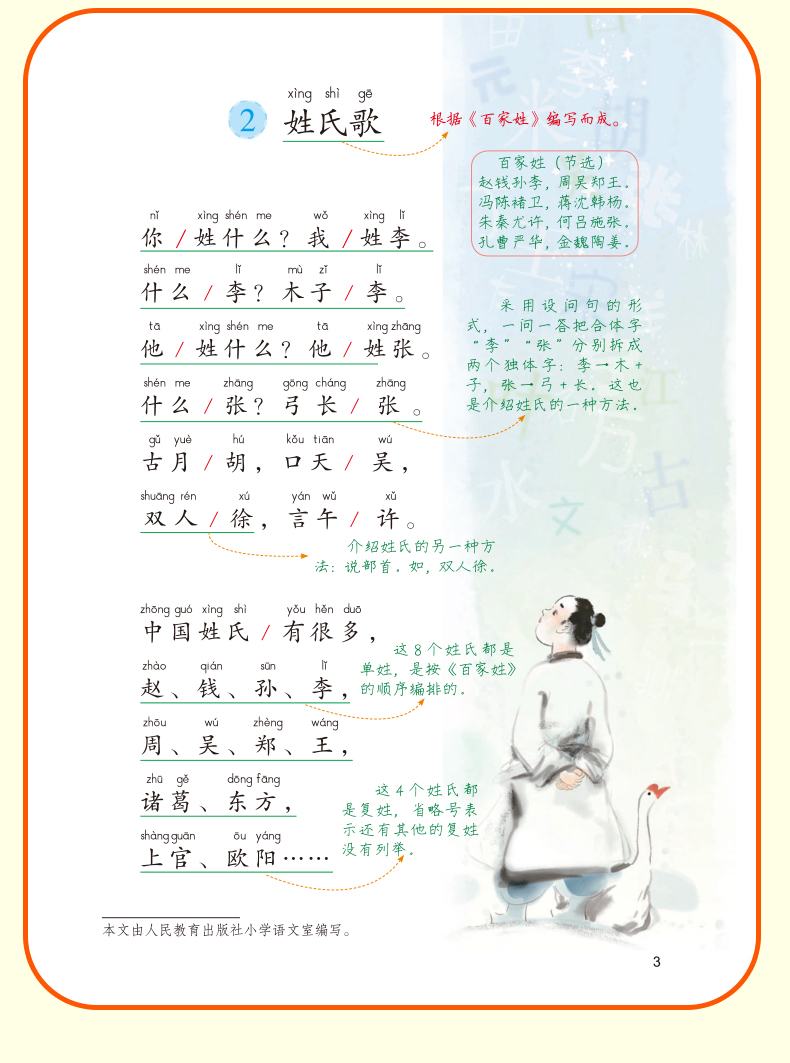 xìng shì gē
2 姓氏歌
根据《百家姓》编写而成。
百家姓（节选）
赵钱孙李，周吴郑王。
冯陈褚卫，蒋沈韩杨。
朱秦尤许，何吕施张。
孔曹严华，金魏陶姜。
nǐ xìng shén me wǒ xìng lǐ
你/姓什么？我/姓李。
shén me lǐ mù zǐ lǐ
什么/李？木子/李。
tā xìng shén me tā xìng zhāng
他/姓什么？他/姓张。
shén me zhāng gōng cháng zhāng
什么/张？弓长/张。
采用设问句的形
式，一问一答把合体字
“李”“张”分别拆成
两个独体字：李→木+
子，张→弓+长．这也
是介绍姓氏的一种方法．
gǔ yuè hú kǒu tiān wú
古月/胡，口天/吴，
shuāng rén xú yán wǔ xǔ
双人/徐，言午/许。
介绍姓氏的另一种方
法：说部首．如，双人徐．
zhōng guó xìng shì yǒu hěn duō
中国姓氏/有很多，
zhào qián sūn lǐ
赵、钱、孙、李，
这8个姓氏都是
单姓，是按《百家姓》
的顺序编排的．
zhōu wú zhèng wáng
周、吴、郑、王，
zhū gě dōng fāng
诸葛、东方，
shàng guān ōu yáng
上官、欧阳……
这4个姓氏都
是复姓，省略号表
示还有其他的复姓
没有列举．
元
李
吕
胡
张
江
万
古
水
文
本文由人民教育出版社小学语文室编写。
3